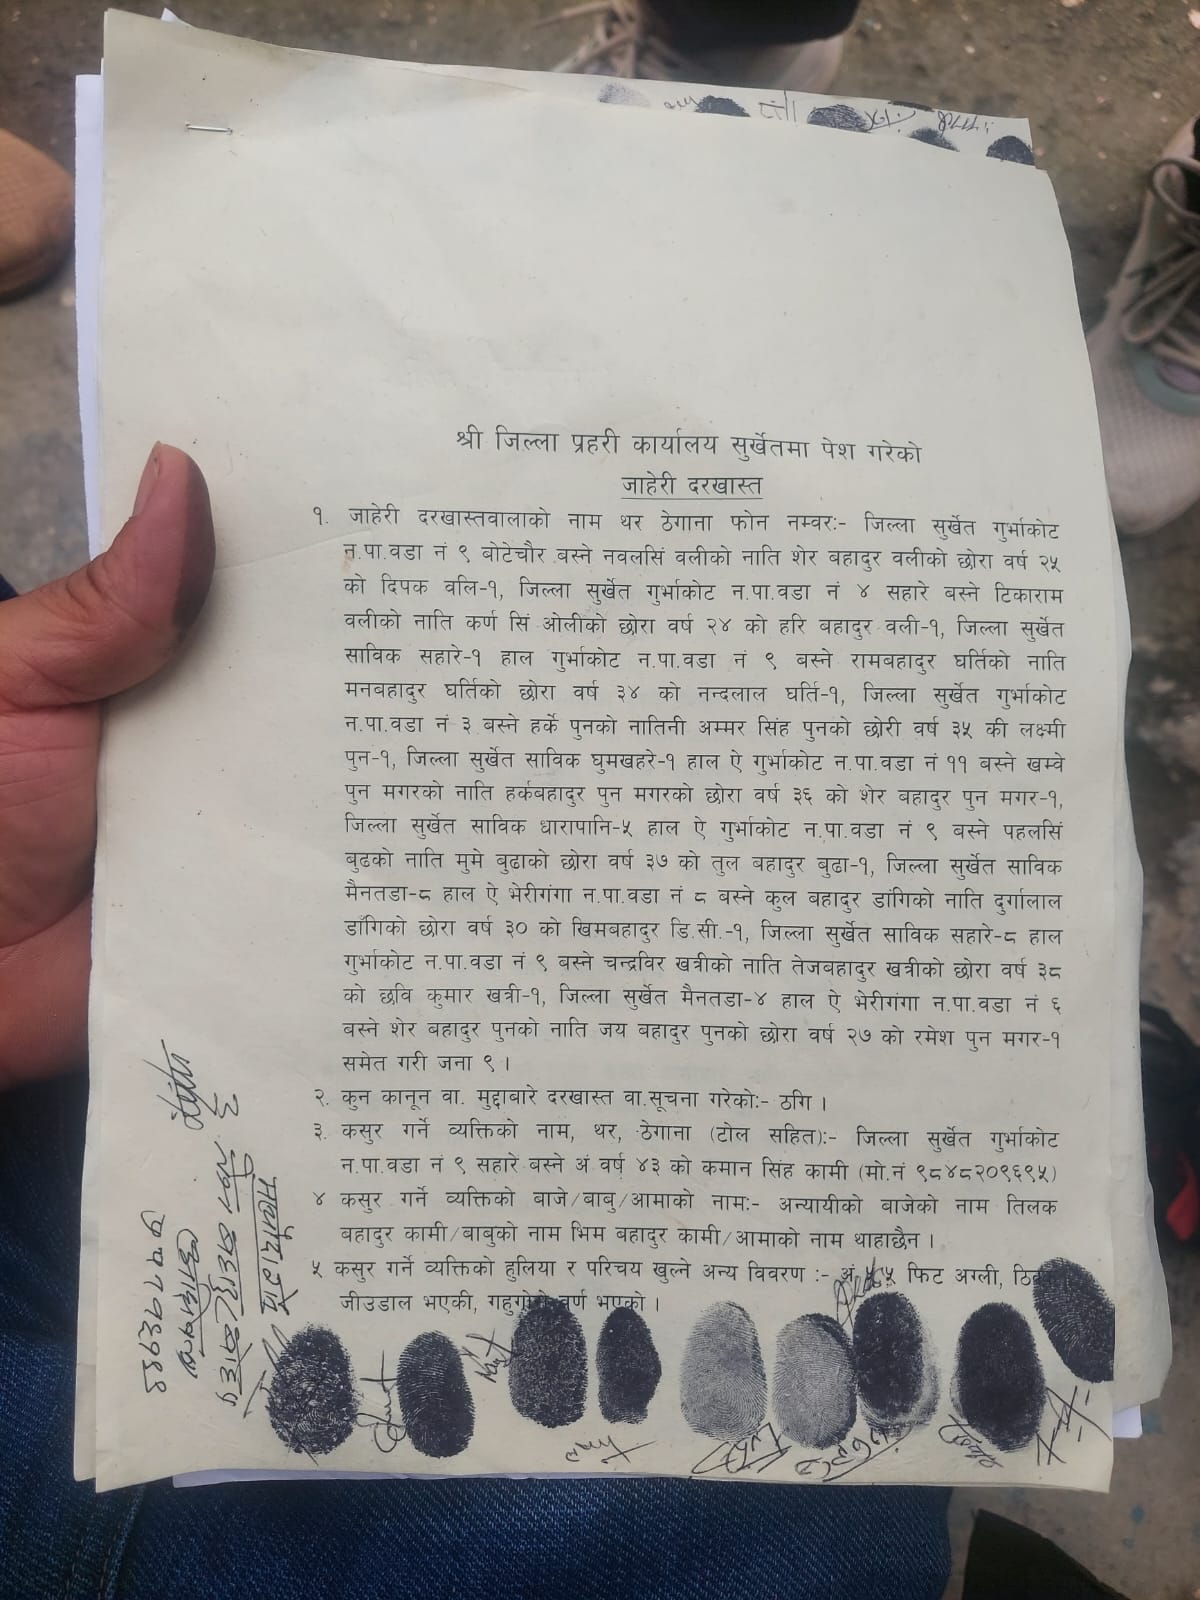 श्री जिल्ला प्रहरी कार्यालय सुर्खेतमा पेश गरेको
जाहेरी दरखास्त
१. जाहेरी दरखास्तवालाको नाम थर ठेगाना फोन नम्वरः- जिल्ला सुर्खेत गुर्भाकोट
न.पा.वडा नं ९ बोटेचौर बस्ने नवलसिं वलीको नाति शेर बहादुर वलीको छोरा वर्ष २५
को दिपक वलि-१, जिल्ला सुर्खेत गुर्भाकोट न.पा.वडा नं ४ सहारे बस्ने टिकाराम
वलीको नाति कर्ण सिं ओलीको छोरा वर्ष २४ को हरि बहादुर वली-१, जिल्ला सुर्खेत
साविक सहारे-१ हाल गुर्भाकोट न.पा.वडा नं ९ बस्ने रामबहादुर घर्तिको नाति
मनबहादुर घर्तिको छोरा वर्ष ३४ को नन्दलाल घर्ति-१, जिल्ला सुर्खेत गुर्भाकोट
न.पा.वडा नं ३ बस्ने हर्के पुनको नातिनी अम्मर सिंह पुनको छोरी वर्ष ३५ की लक्ष्मी
पुन-१, जिल्ला सुर्खेत साविक घुमखहरे-१ हाल ऐ गुर्भाकोट न.पा.वडा नं ११ बस्ने खम्वे
पुन मगरको नाति हर्कबहादुर पुन मगरको छोरा वर्ष ३६ को शेर बहादुर पुन मगर-१,
जिल्ला सुर्खेत साविक धारापानि-५ हाल ऐ गुर्भाकोट न.पा.वडा नं ९ बस्ने पहलसिं
बुढको नाति मुमे बुढाको छोरा वर्ष ३७ को तुल बहादुर बुढा-१, जिल्ला सुर्खेत साविक
मैनतडा-८ हाल ऐ भेरीगंगा न.पा.वडा नं ८ बस्ने कुल बहादुर डांगिको नाति दुर्गालाल
डाँगिको छोरा वर्ष ३० को खिमबहादुर डि.सी.-१, जिल्ला सुर्खेत साविक सहारे-८ हाल
गुर्भाकोट न.पा.वडा नं ९ बस्ने चन्द्रविर खत्रीको नाति तेजबहादुर खत्रीको छोरा वर्ष ३८
को छवि कुमार खत्री-१, जिल्ला सुर्खेत मैनतडा-४ हाल ऐ भेरीगंगा न.पा.वडा नं ६
बस्ने शेर बहादुर पुनको नाति जय बहादुर पुनको छोरा वर्ष २७ को रमेश पुन मगर-१
समेत गरी जना ९ ।
२. कुन कानून वा. मुद्दाबारे दरखास्त वा.सूचना गरेकोः- ठगि ।
३. कसुर गर्ने व्यक्तिको नाम, थर, ठेगाना (टोल सहित)ः- जिल्ला सुर्खेत गुर्भाकोट
न.पा.वडा नं ९ सहारे बस्ने अं वर्ष ४३ को कमान सिंह कामी (मो.नं ९८४८२०९६९५)
४ कसुर गर्ने व्यक्तिको बाजे/बाबु/आमाको नामः- अन्यायीको बाजेको नाम तिलक
बहादुर कामी/बाबुको नाम भिम बहादुर कामी/आमाको नाम थाहाछैन ।
५ कसुर गर्ने व्यक्तिको हुलिया र परिचय खुल्ने अन्य विवरण :- अं ५.५ फिट अग्ली,
जीउडाल भएकी, गहुगोरो वर्ण भएको ।